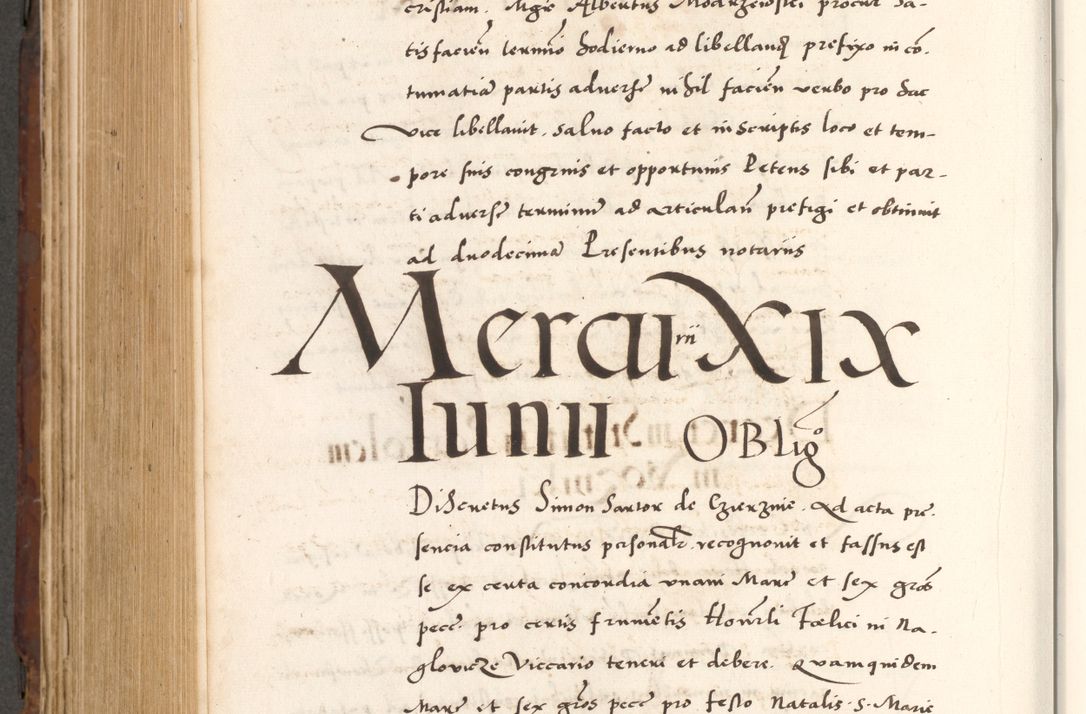 cristiani. Mgr Albertus Modrzeiofsci procur sa-
tisfacien termino hodierno ad libellandum prefixo in co͂-
tumatia partis adverse nihil facien verbo pro hac
vice libellavit. salvo facto et in scriptis loco et tem-
pore suis congruis et opportunis Petens sibi et par-
ti adverse terminum ad articulan prefigi et obtinuit
ad duodecima Presentibus notariis
Mercurii XIX
Iunii OBLigo
Discretus Simon Sartor de Czierznie. Ad acta pre-
sencia constitutus personalr. recognovit et fassus est
se ex certa concordia unam Marc et sex gros
pece. pro certis frumentis Honorli Fœlici in Na-
glovicze Viccario teneri et debere. Quam quidem
Marc et sex gros pece pro festo Natalis S. Marie